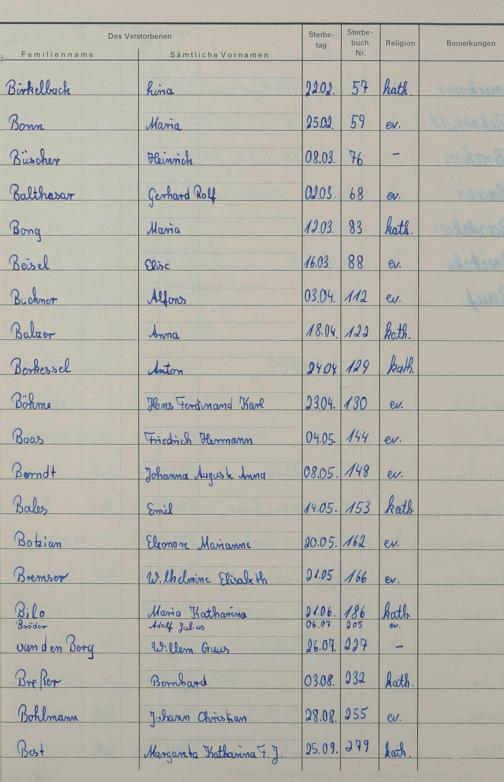 Des Verstorbenen Sterbe- tag Sterbe- buch Nr. Religion Bemerkungen
Familienname Sämtliche Vornamen
Birkelbach Lina 22.02. 57 kath.
Bonn Maria 25.02. 59 ev.
Büscher Heinrich 08.03. 76 -
Balthasar Gerhard Rolf 02.03. 68 ev.
Bong Maria 12.03. 83 kath.
Beisel Elise 16.03. 88 ev.
Buchner Alfons 03.04. 112 ev.
Balzer Anna 18.04. 122 kath.
Berkessel Anton 24.04 129 kath.
Böhme Hans Ferdinand Karl 23.04. 130 ev.
Baas Friedrich Hermann 04.05. 144 ev.
Berndt Johanna Auguste Anna 08.05. 148 ev.
Bales Emil 14.05. 153 kath.
Botzian Eleonore Marianne 20.05. 162 ev.
Bremser Wilhelmine Elisabeth 21.05 166 ev.
Bilo Maria Katharina 21.06. 186 kath
Bröder Adolf Julius 06.07. 205 ev.
van den Berg Willem 26.07. 227 -
Breßer Bernhard 03.08. 232 kath.
Bohlmann Johann Christian 28.08. 255 ev.
Best Margareta Katharina F. J. 25.09. 279 kath.